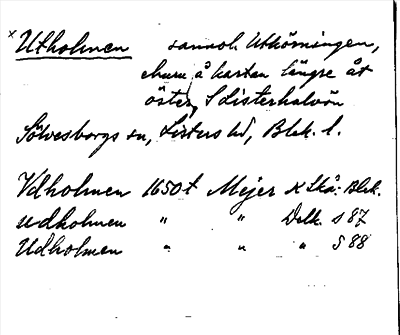 x Utholmen sannol. Uthörningen,
ehuru å kartan längre åt
öster, S Listerhalvön
Sölvesborgs sn, Listers hd, Blek. l.
Vdholmen 1650t Mejer K Skå: Blek.
udholmen " " Delk. s 87
Udholmen " " " S 88